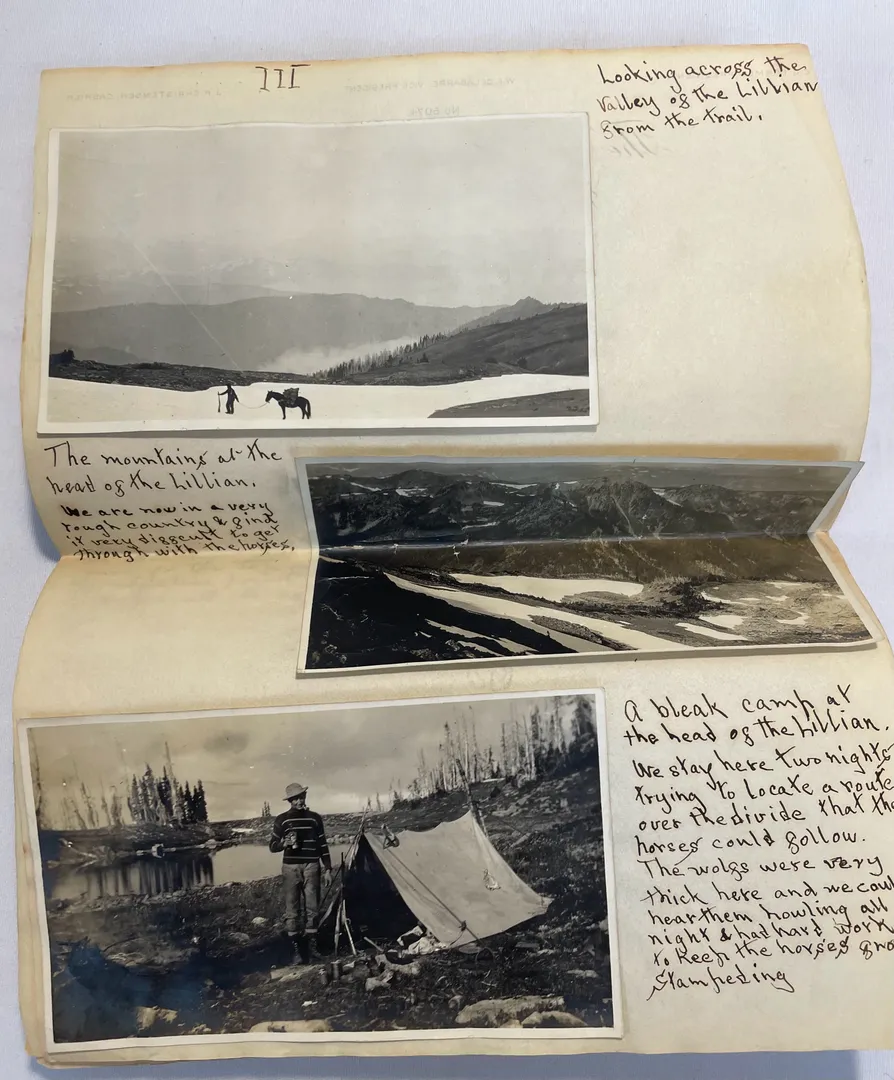 III
Looking across the
valley of the Lillian
from the trail.
The mountains at the
head of the Lillian.
We are now in a very
rough country & find
it very difficult to get
through with the horses.
A bleak camp at
the head of the Lillian.
We stay here two nights
trying to locate a route
over the divide that the
horses could follow.
The wolfs were very
thick here and we coul
hear them howling all
night & had hard work
to keep the horses fro
stampeding